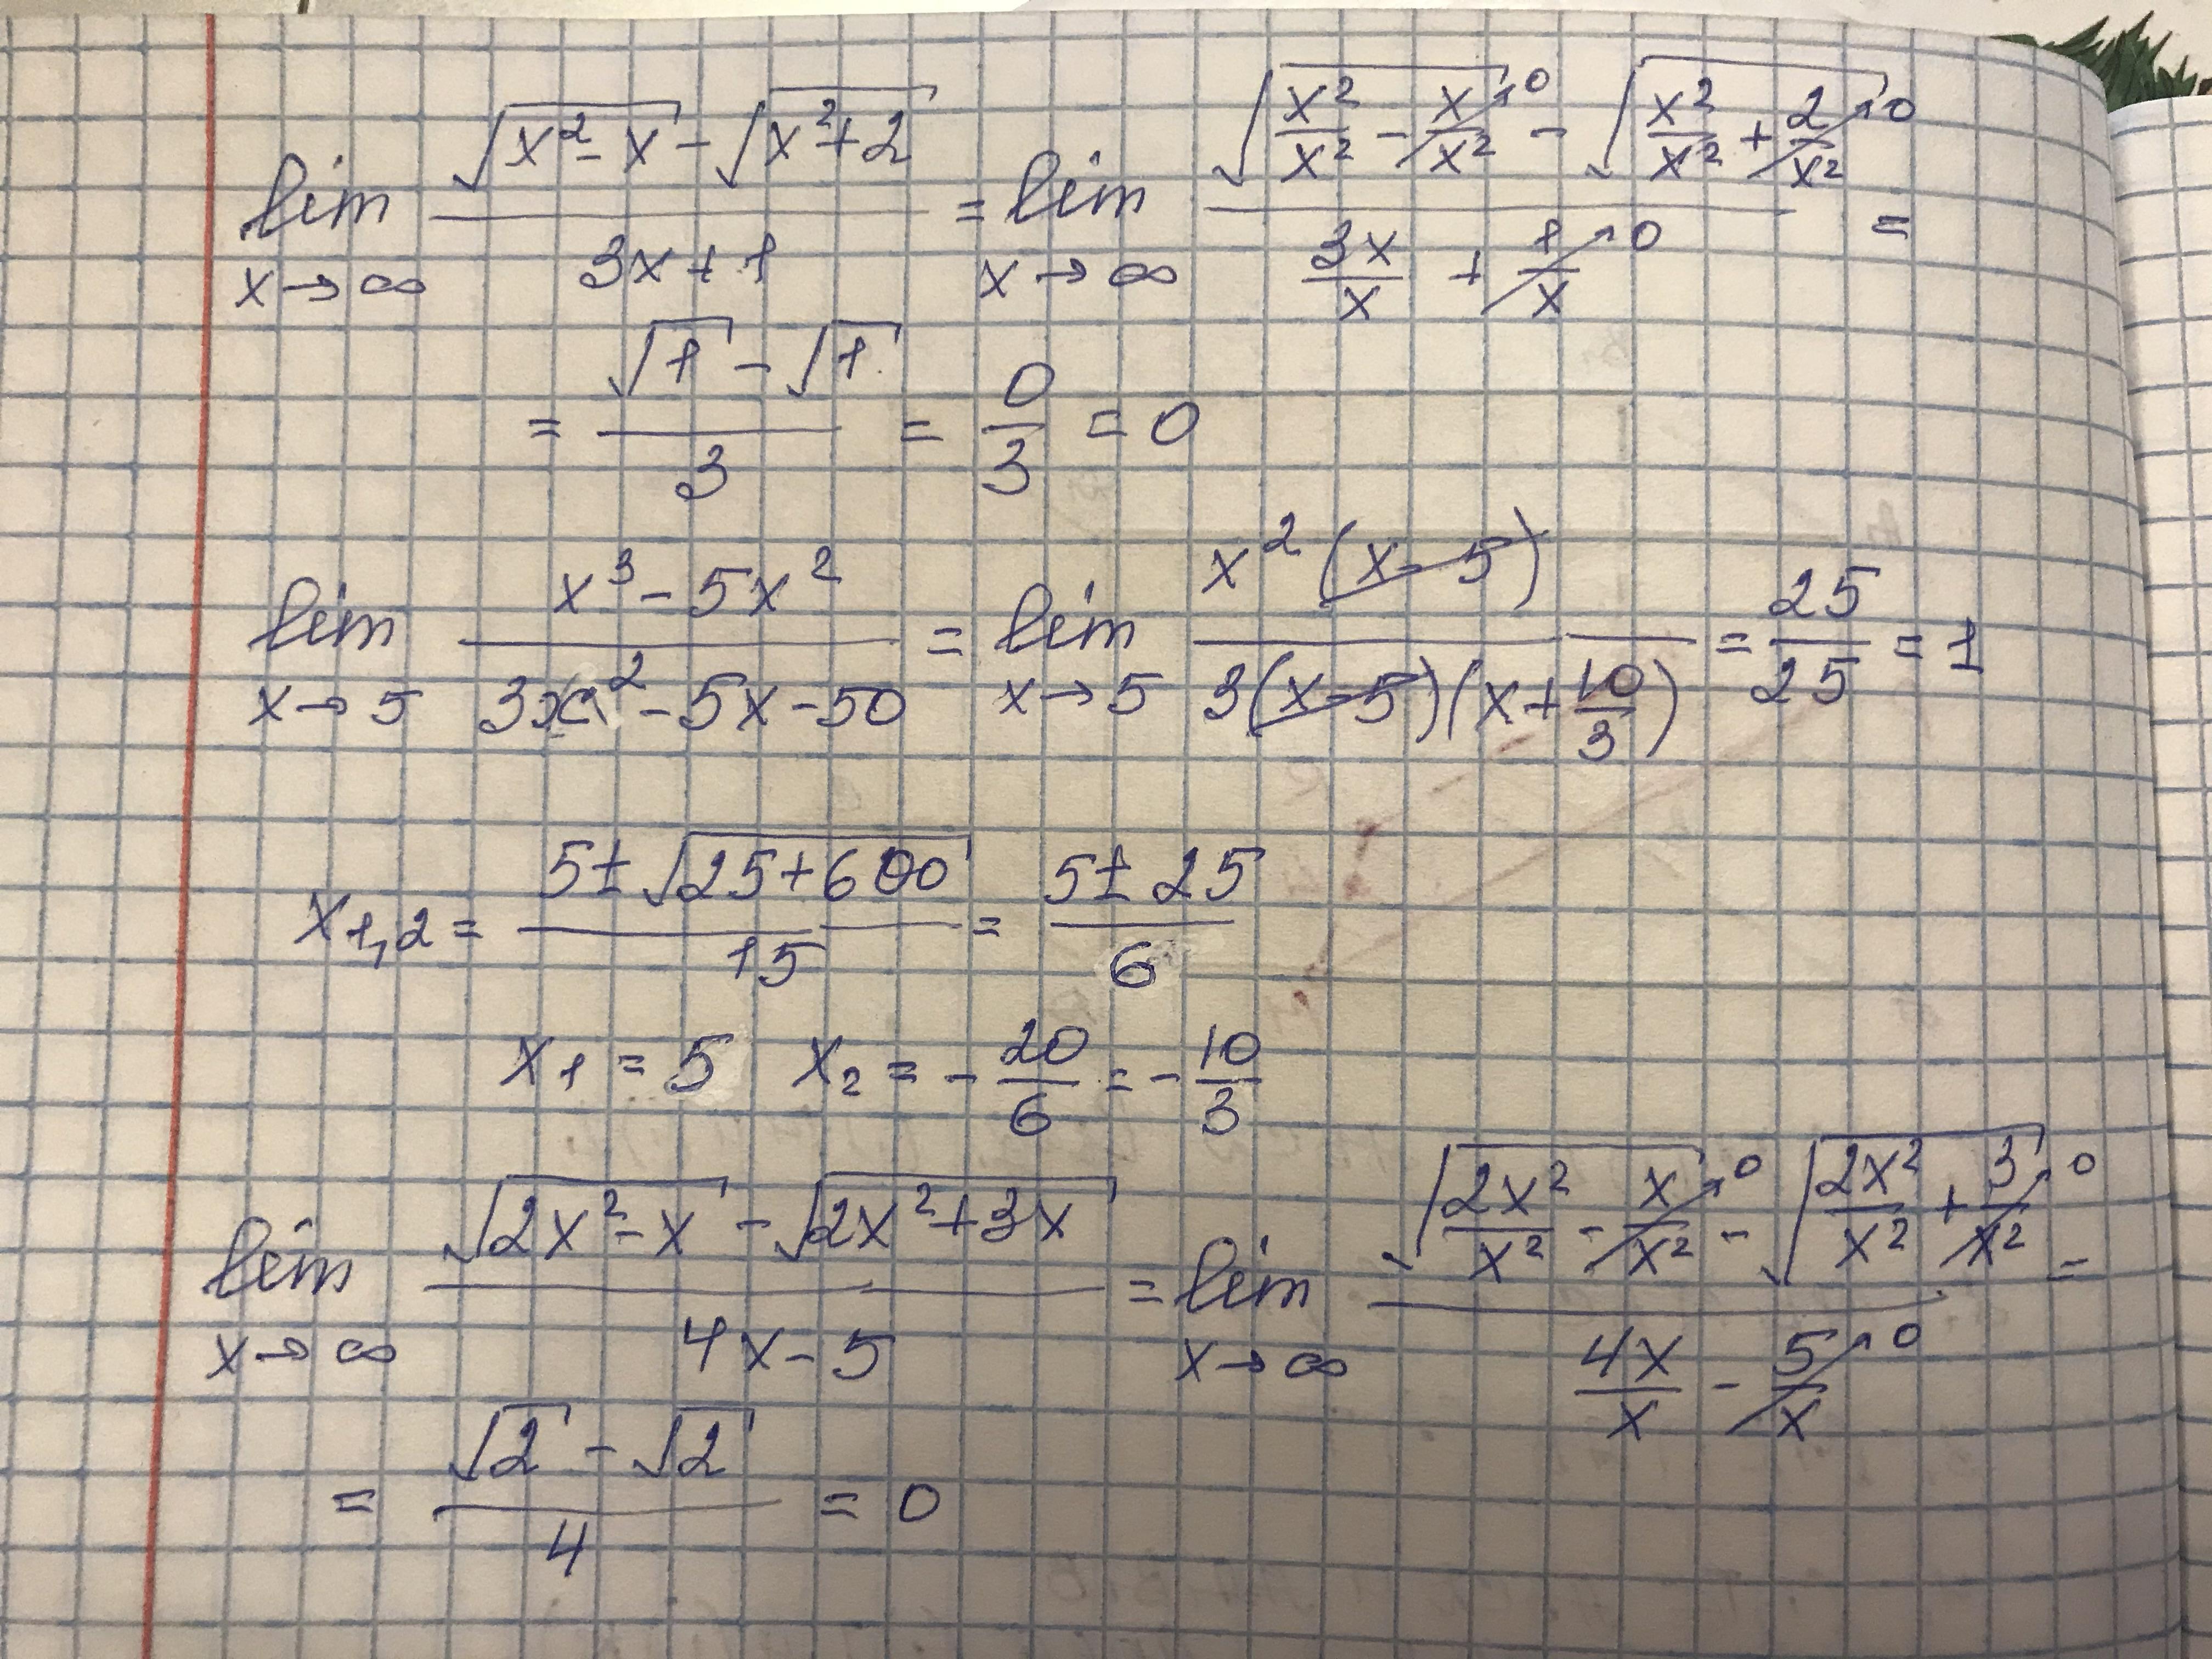 lim x→∞ (√(x² - x) - √(x² + 2)) / (3x + 1) = lim x→∞ (√(x²/x² - x/x² →0) - √(x²/x² + 2/x² →0)) / (3x/x + 1/x →0) =
= (√1 - √1) / 3 = 0/3 = 0
lim x→5 (x³ - 5x²) / (3x² - 5x - 50) = lim x→5 (x²(x - 5)) / (3(x - 5)(x + 10/3)) = 25/25 = 1
x₁,₂ = (5 ± √(25 + 600)) / 15 = (5 ± 25) / 6
x₁ = 5 x₂ = - 20/6 = - 10/3
lim x→∞ (√(2x² - x) - √(2x² + 3x)) / (4x - 5) = lim x→∞ (√(2x²/x² - x/x² →0) - √(2x²/x² + 3/x² →0)) / (4x/x - 5/x →0) =
= (√2 - √2) / 4 = 0